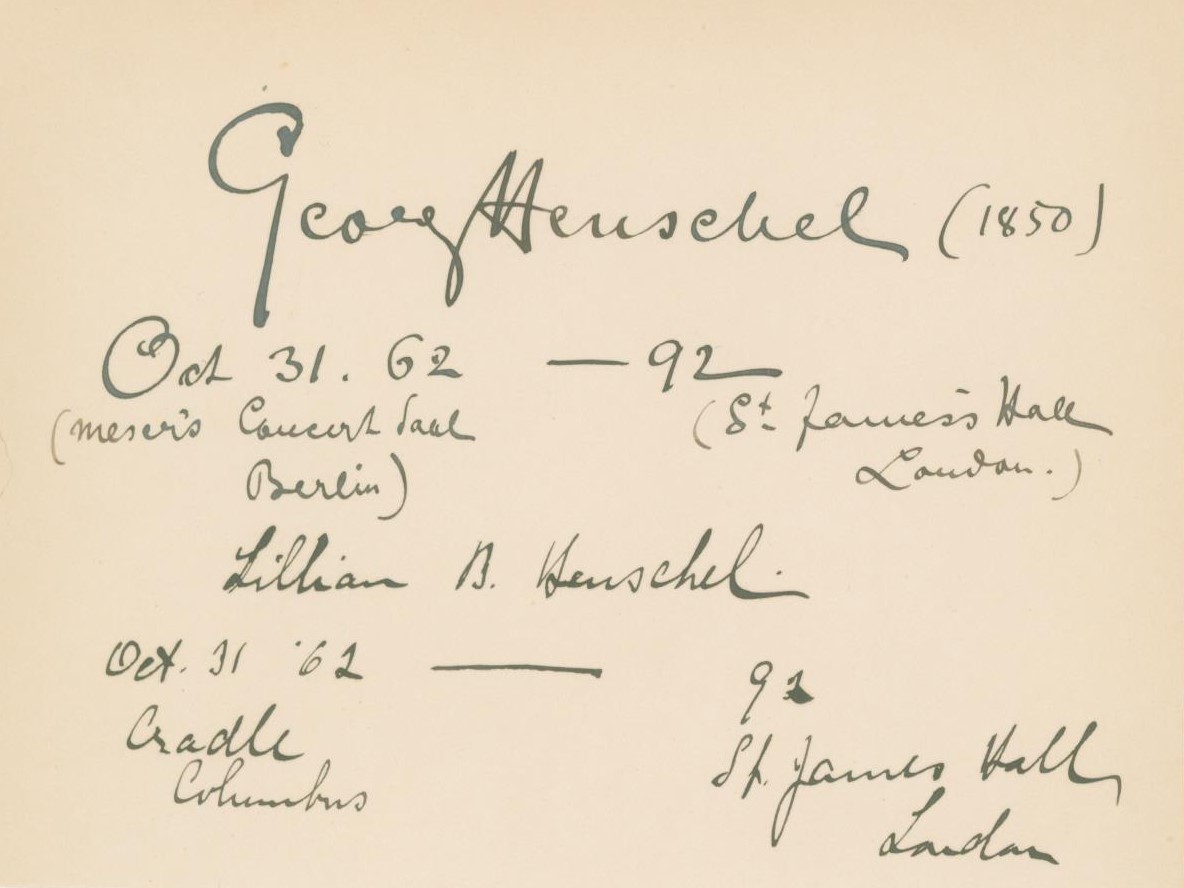 Georg Henschel (1850)
Oct 31. 62 — 92
(Meser's Concert Saal (St. James's Hall
Berlin) London.)
Lillian B. Henschel.
Oct. 31 '62 — 92
Cradle St. James Hall,
Columbus London